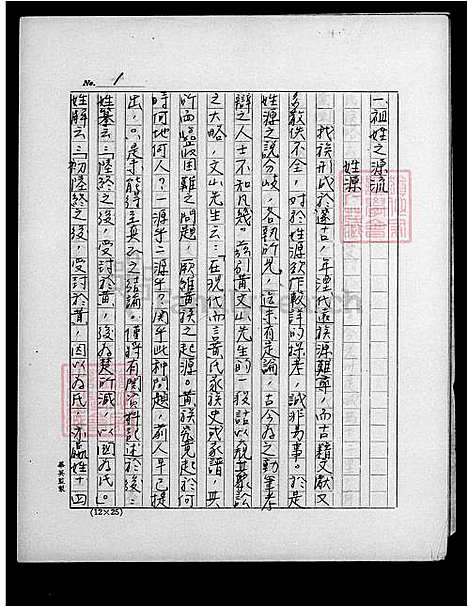 No. 1
一、祖姓之源流
姓源
我族形氏於邃古，年湮代遠族源難尋，而古籍文獻又
多散佚不全，對於姓源欲作較詳的探考，誠非易事。於是
姓源之說分岐，各執所見，迄未有定論，古今為之動筆考
辯之人士不知凡幾。茲引黃文山先生的一段話以窺其聚訟
之大略，文山先生云：「在現代而言黃氏家族史或家譜，其
所面臨最困難之問題，厥維黃族之起源。黃族究竟起於何
時何地何人？一源乎二源乎？関乎此种問題，前人早已提
出，是求能得至真正之結論。僅將有関資料記述於後：
姓纂云：「陸終之後，受封於黃，後為楚所滅，以國為氏。」
姓解云：「初陸終之後，受封於黃，因以為氏，亦嬴姓十四
(12×25)